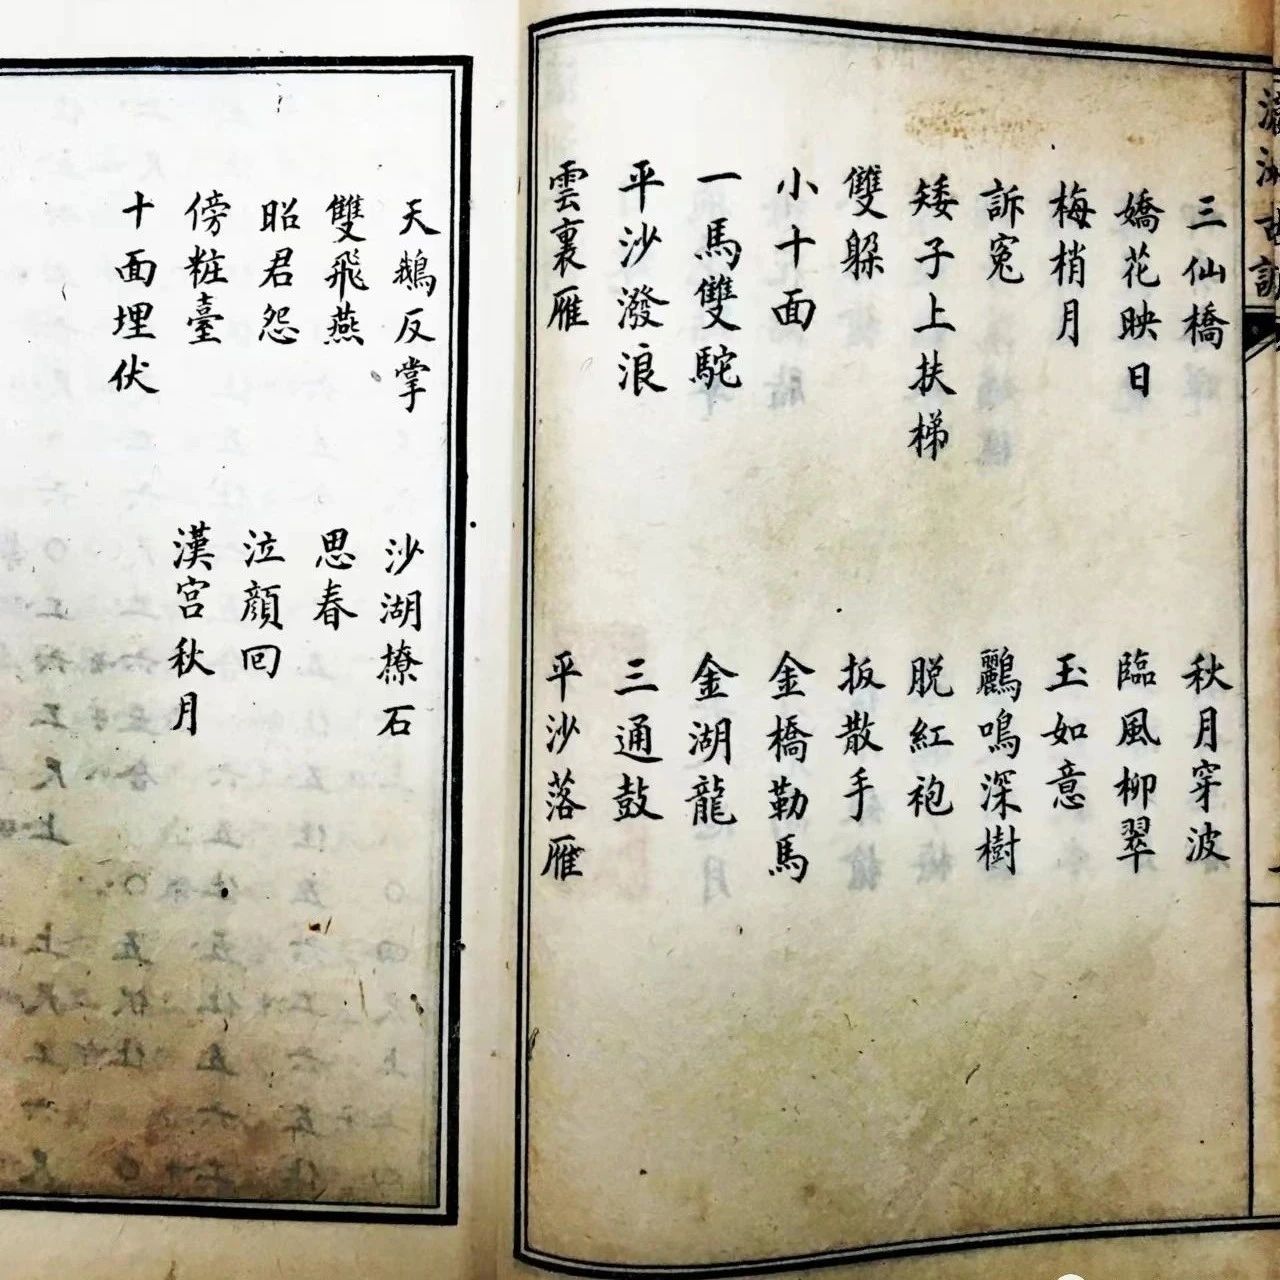 瀛洲古調
三仙橋 秋月穿波
嬌花映日 臨風柳翠
梅梢月 玉如意
訴冤 鸝鳴深樹
矮子上扶梯 脱紅袍
雙躲 扳散手
小十面 金橋勒馬
一馬雙駝 金湖龍
平沙潑浪 三通鼓
雲裏雁 平沙落雁
天鵝反掌 沙湖撩石
雙飛燕 思春
昭君怨 泣顔回
傍粧臺 漢宮秋月
十面埋伏